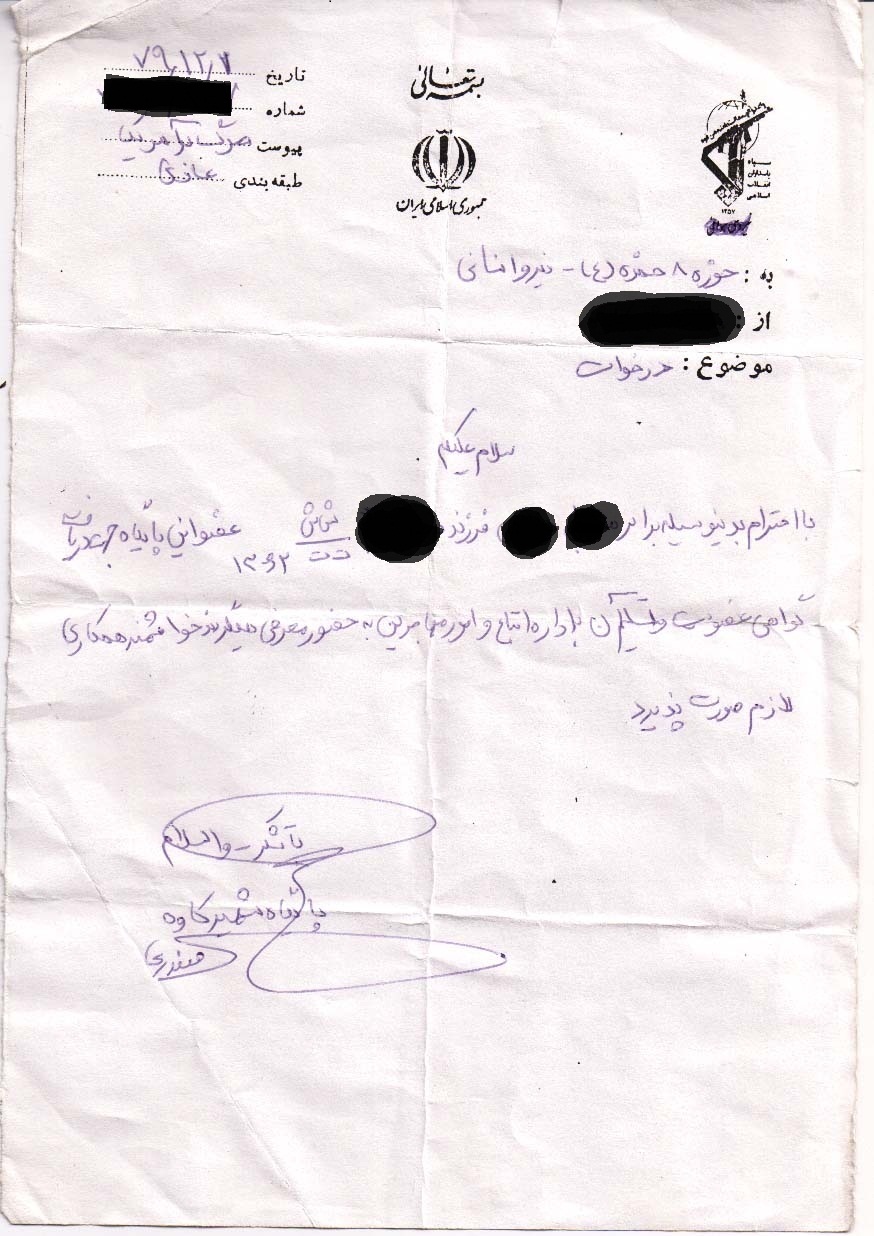 بسمه تعالی
جمهوری اسلامی ایران
سپاه
پاسداران
انقلاب
اسلامی
۱۳۵۷
تاریخ ۷۹/۱۲/۷
شماره
پیوست
طبقه بندی عادی
به : حوزه ۸ حمزه (۴) - نیروانسانی
از :
موضوع : درخواست
سلام علیکم
با احترام بدینوسیله برادر فرزند ش ش ت ت ۱۳۶۲ عضو این پایگاه جهت دریافت
گواهی عضویت و تسلیم آن به اداره اتباع و امور مهاجرین به حضور معرفی میگردد خواهشمند همکاری
لازم صورت پذیرد
باتشکر - والسلام
پایگاه شهید کاوه